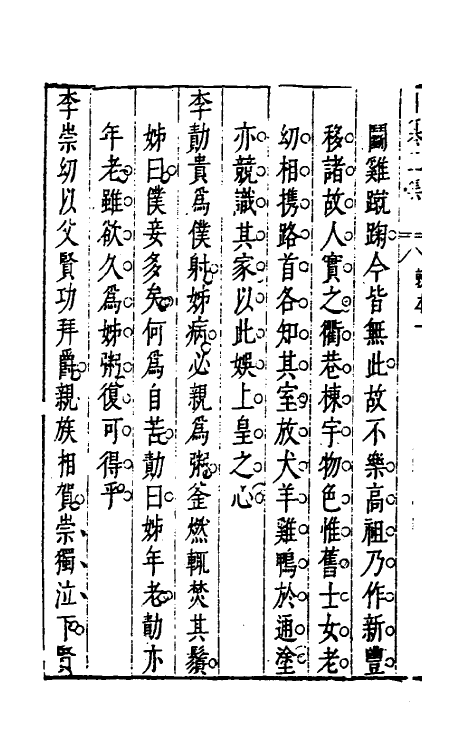 鬭雞蹴踘今皆無此故不樂高祖乃作新豐
移諸故人實之衢巷棟宇物色惟舊士女老
幼相携路首各知其室放犬羊雞鴨於通塗
亦競識其家以此娛上皇之心
李勣貴為僕射姊病必親為粥釜燃輒焚其鬚
姊曰僕妾多矣何為自苦勣曰姊年老勣亦
年老雖欲久為姊粥復可得乎
李崇幼以父賢功拜爵親族相賀崇獨泣下賢